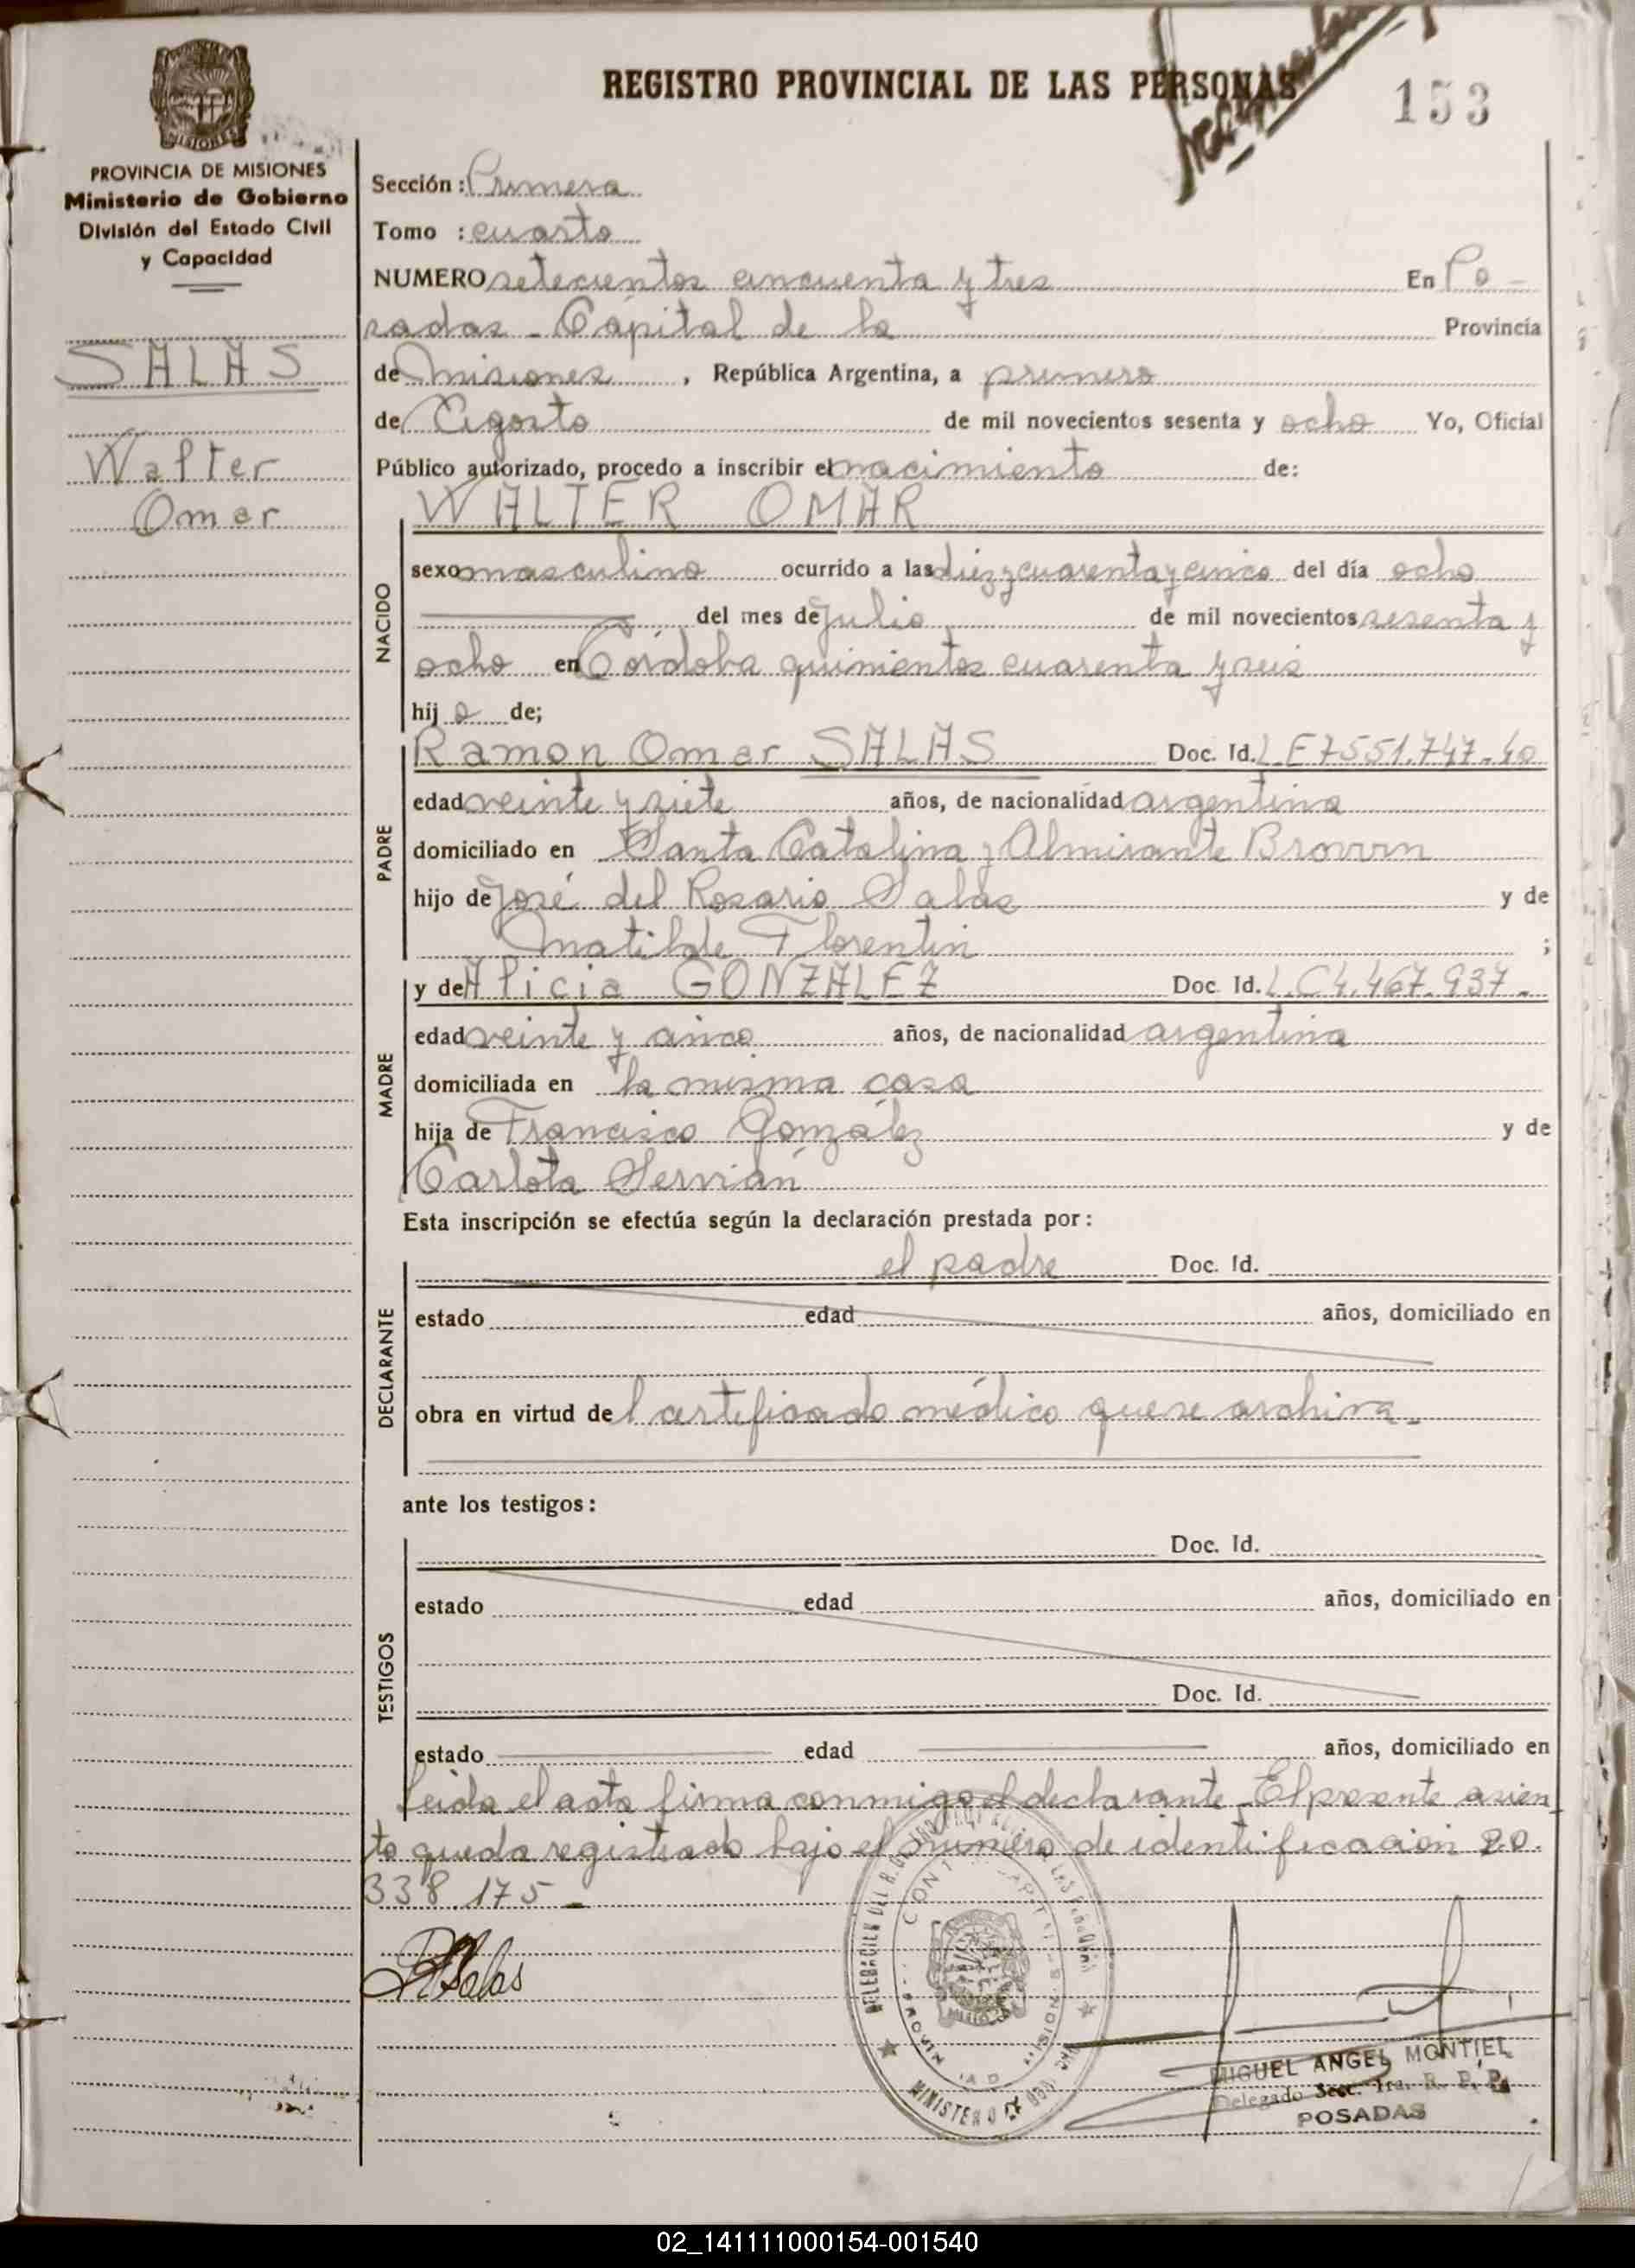 REGISTRO PROVINCIAL DE LAS PERSONAS
153
PROVINCIA DE MISIONES
Ministerio de Gobierno
División del Estado Civil
y Capacidad
SALAS
Walter
Omar
Sección: Primera
Tomo : cuarto
NUMERO setecientos cincuenta y tres En Po-
sadas - Cápital de la Provincia
de misiones, República Argentina, a primero
de Agosto de mil novecientos sesenta y ocho Yo, Oficial
Público autorizado, procedo a inscribir el nacimiento de:
WALTER OMAR
NACIDO
sexo masculino ocurrido a las diez y cuarenta y cinco del día ocho
del mes de julio de mil novecientos sesenta y
ocho en Córdoba quinientos cuarenta y seis
hij o de;
PADRE
Ramon Omar SALAS Doc. Id. L.E 7551.747-40
edad veinte y siete años, de nacionalidad argentina
domiciliado en Santa Catalina y Almirante Brown
hijo de José del Rosario Salas y de
Matilde Florentin ;
MADRE
y de Alicia GONZALEZ Doc. Id. L.C 4.467.937.-
edad veinte y cinco años, de nacionalidad argentina
domiciliada en la misma casa
hija de Francisco González y de
Carlota Servián
Esta inscripción se efectúa según la declaración prestada por:
DECLARANTE
el padre Doc. Id.
estado edad años, domiciliado en
obra en virtud de l certificado médico que se archiva.-
ante los testigos:
TESTIGOS
Doc. Id.
estado edad años, domiciliado en
Doc. Id.
estado edad años, domiciliado en
Leída el acta firma conmigo el declarante. El presente asien
to queda registrado bajo el número de identificación 20.
338.175-
Salas
MINISTERIO DE
MIGUEL ANGEL MONTIEL
Delegado Secc. 1ra. R. P. P.
POSADAS
02_141111000154-001540